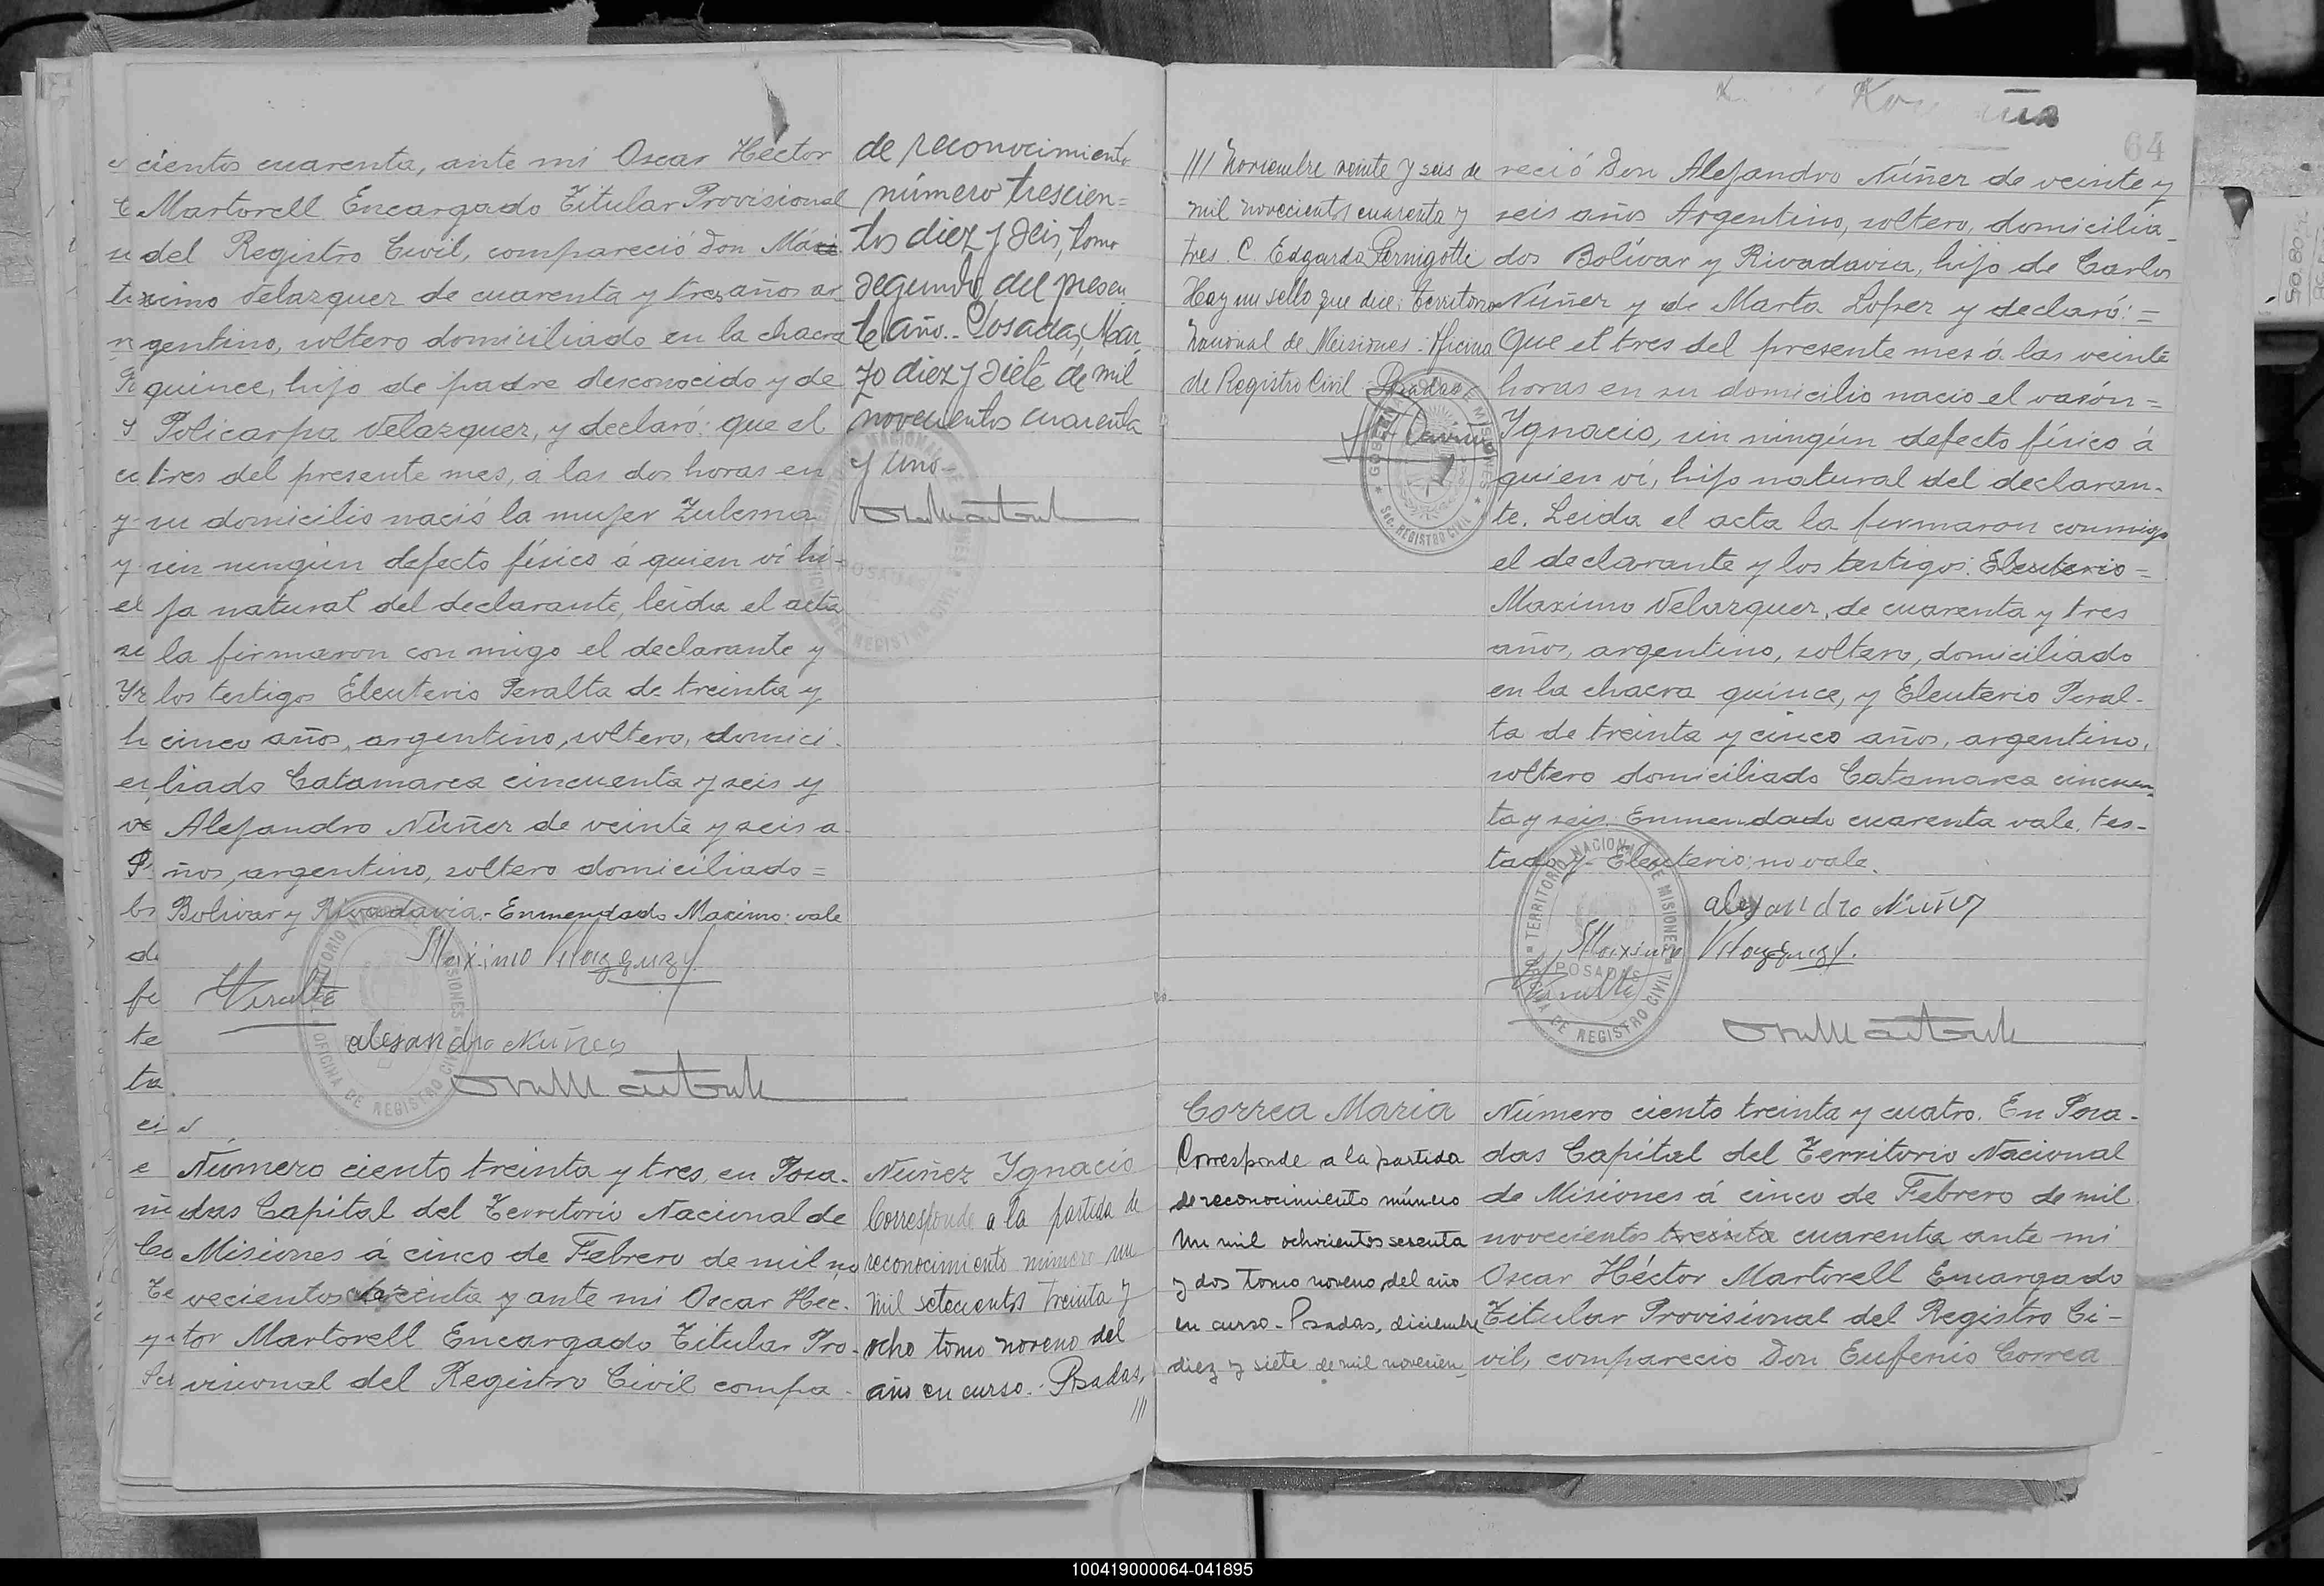 cientos cuarenta, ante mi Oscar Héctor
Martorell Encargado Titular Provisional
del Registro Civil, compareció Don Máxi
ximo Velazquez de cuarenta y tres años ar
gentino, soltero domiciliado en la chacra
quince, hijo de padre desconocido y de
Policarpa Velazquez, y declaró: que el
tres del presente mes, a las dos horas en
su domicilio nació la mujer Zulema
sin ningún defecto físico á quien vi hi=
ja natural del declarante, leida el acta
la firmaron con migo el declarante y
los testigos Eleuterio Peralta de treinta y
cinco años, argentino, soltero, domici-
liado Catamarca cincuenta y seis y
Alejandro Núñez de veinte y seis a-
ños, argentino, soltero domiciliado =
Bolivar y Rivadavia.- Enmendado Maximo: vale
Maximo Velazquez
Peralta
alejandro Nuñez
TERRITORIO NACIONAL DE MISIONES
OFICINA DE REGISTRO CIVIL
de reconocimiento
número trescien=
tos diez y seis, tomo
segundo del presen
te año.- Posadas, Mar
zo diez y siete de mil
novecientos cuarenta
y uno.-
POSADAS
Número ciento treinta y tres, en Posa-
das Capital del Territorio Nacional de
Misiones á cinco de Febrero de mil no
vecientos cuarenta y ante mi Oscar Hec-
tor Martorell Encargado Titular Pro-
visional del Registro Civil compa-
Nuñez Ygnacio
Corresponde a la partida de
reconocimiento número un
mil setecientos treinta y
ocho tomo noveno del
año en curso.- Posadas,
///
64
/// Noviembre veinte y seis de
mil novecientos cuarenta y
tres. C. Edgardo Pernigotti
Hay un sello que dice: Territorio
Nacional de Misiones - Oficina
de Registro Civil - Posadas
GOBERNACION DE MISIONES
Sec. REGISTRO CIVIL
reció Don Alejandro Núñez de veinte y
seis años Argentino, soltero, domicilia-
dos Bolívar y Rivadavia, hijo de Carlos
Núñez y de Marta Lopez y declaró: =
Que el tres del presente mes á las veinte
horas en su domicilio nacio el varón =
Ygnacio, sin ningún defecto físico á
quien vi, hijo natural del declaran-
te. Leida el acta la firmaron conmigo
el declarante y los testigos: Eleuterio =
Maximo Velazquez, de cuarenta y tres
años, argentino, soltero, domiciliado
en la chacra quince, y Eleuterio Peral-
ta de treinta y cinco años, argentino,
soltero domiciliado Catamarca cincuen-
ta y seis. Enmendado cuarenta vale. tes-
tado y- Eleuterio: no vale.
alejandro Nuñez
Maximo Velazquez
Peralta
TERRITORIO NACIONAL DE MISIONES
POSADAS
OFICINA DE REGISTRO CIVIL
Correa Maria
Corresponde a la partida
de reconocimiento número
un mil ochocientos sesenta
y dos tomo noveno del año
en curso - Posadas, diciembre
diez y siete de mil novecien
Número ciento treinta y cuatro. En Posa-
das Capital del Territorio Nacional
de Misiones á cinco de Febrero de mil
novecientos treinta cuarenta ante mi
Oscar Héctor Martorell Encargado
Titular Provisional del Registro Ci-
vil, comparecio Don Eufenio Correa
100419000064-041895